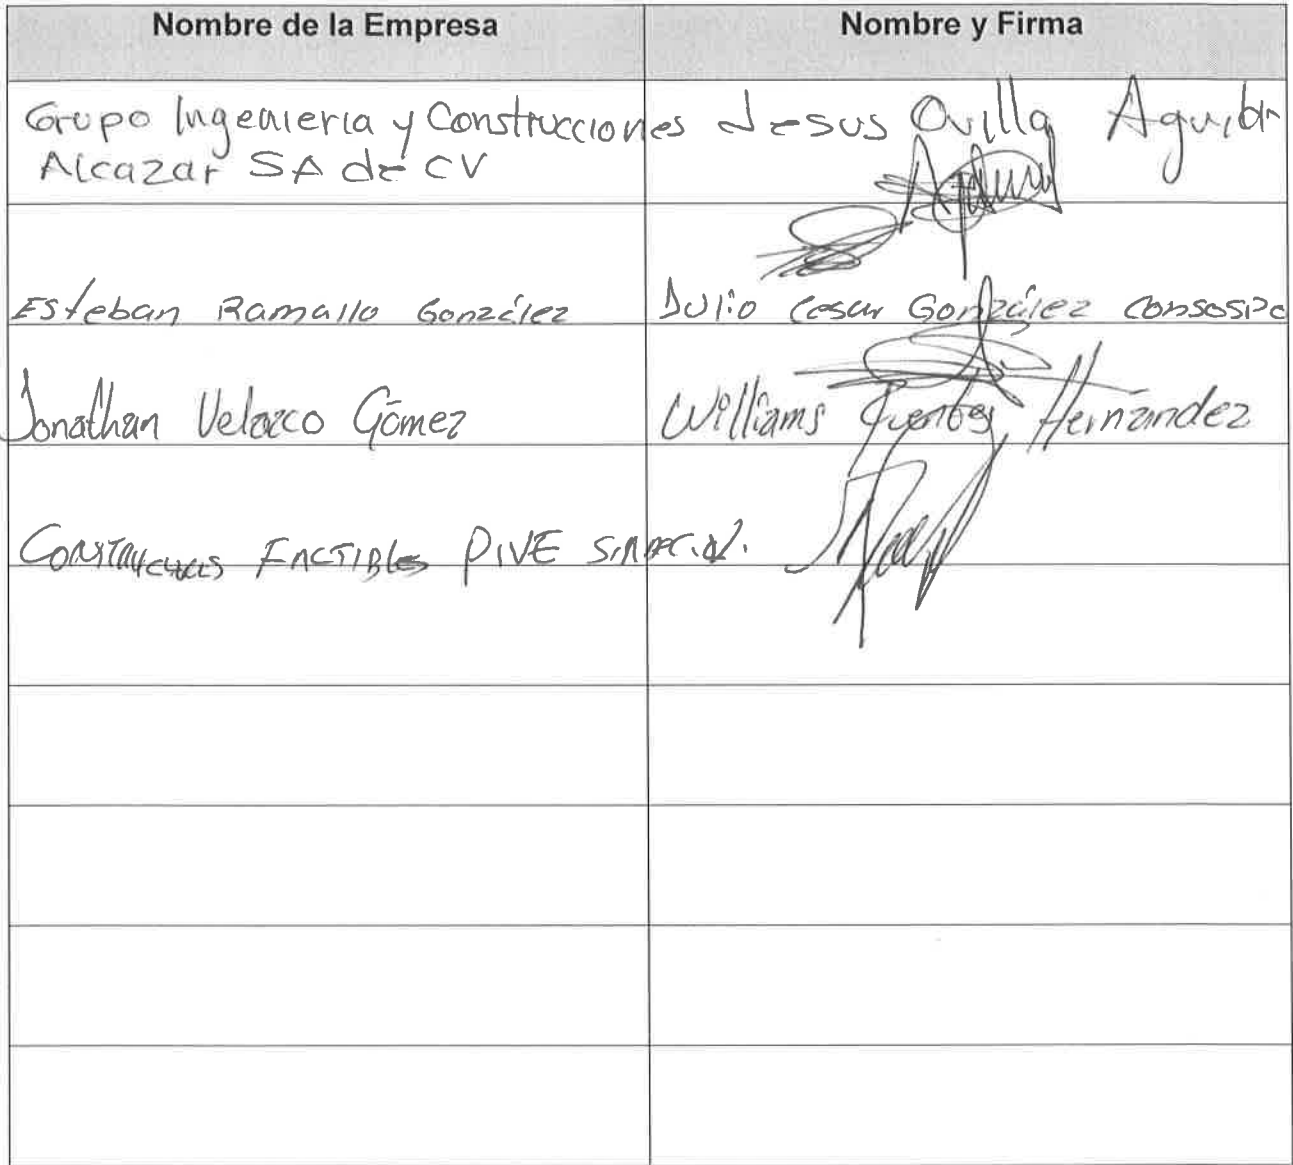 Nombre de la Empresa
Nombre y Firma
Grupo Ingenieria y Construcciones
Alcazar SA de CV
Jesus Ovilla Aguilar
Esteban Ramallo González
Julio Cesar González
Jonathan Velazco Gómez
Williams Fuentes Hernández
FACTIBLES DIVE